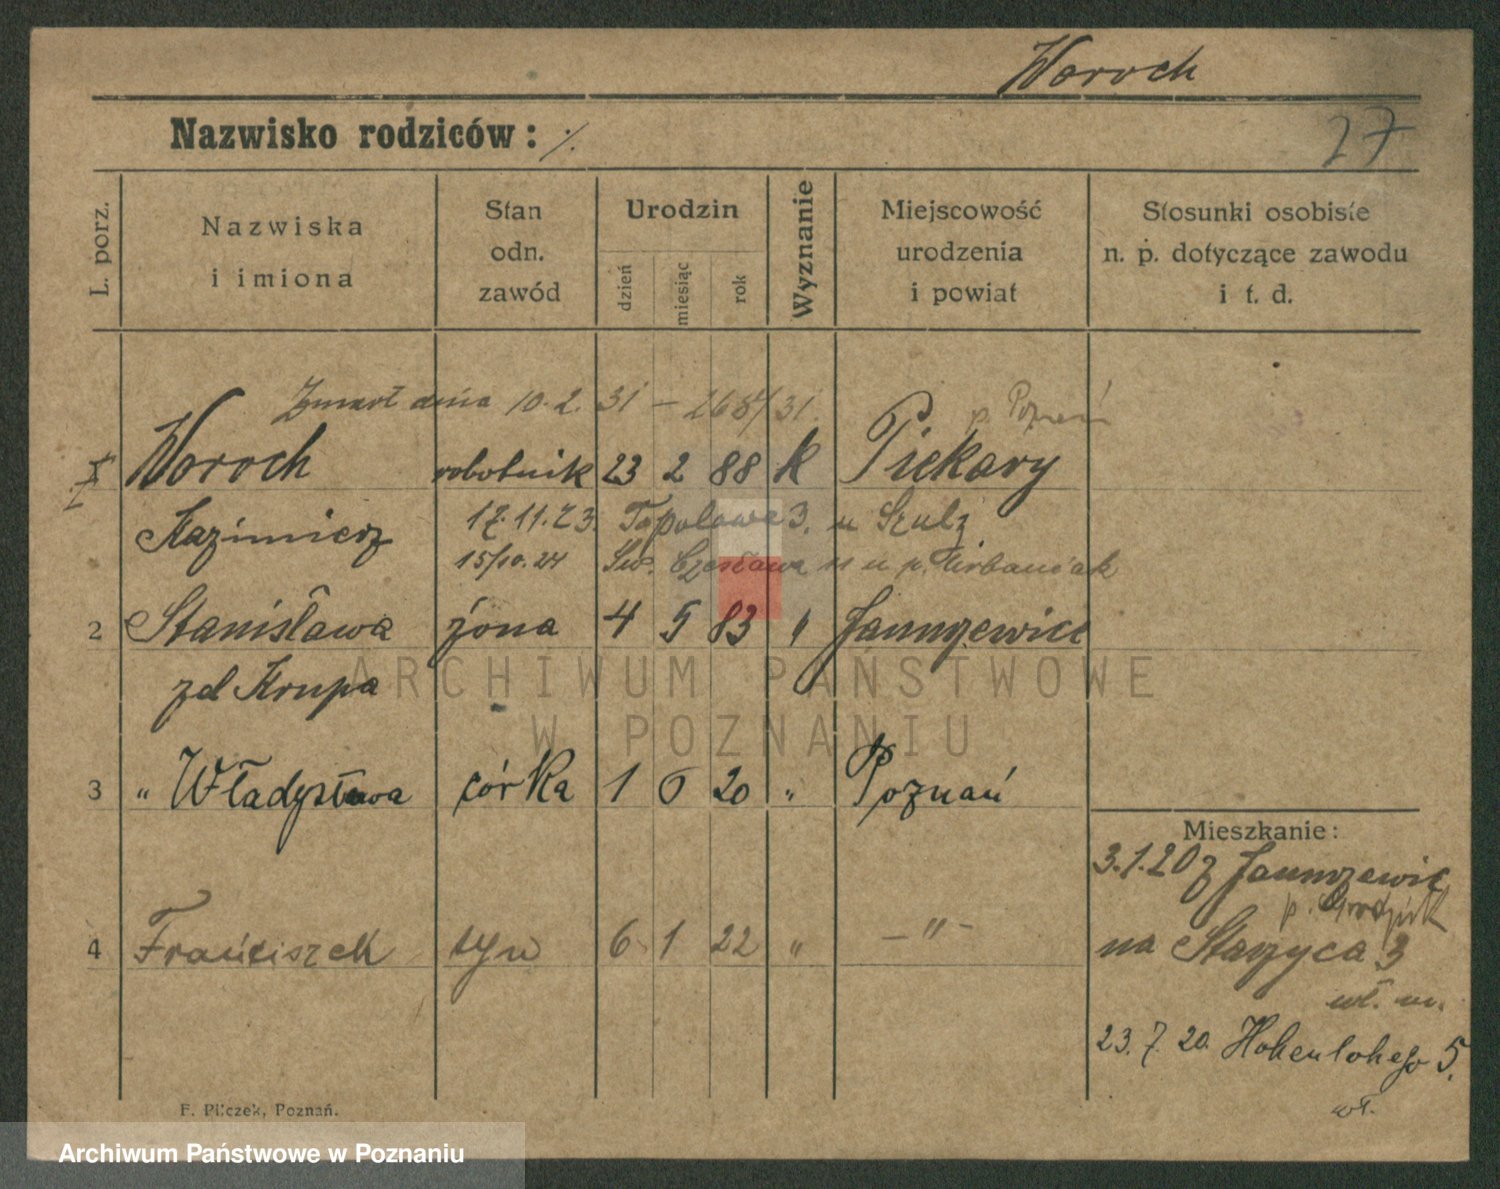 Woroch
Nazwisko rodziców: ·/.
27
L. porz.
Nazwiska
i imiona
Stan
odn.
zawód
Urodzin
dzień
miesiąc
rok
Wyznanie
Miejscowość
urodzenia
i powiat
Stosunki osobiste
n. p. dotyczące zawodu
i t. d.
Zmarł dnia 10. 2. 31 – 268/31.
p Poznań
Woroch robotnik 23 2 88 k Piekary
Kazimierz 17.11.23. Topolowa 3. u Szulz
15/10.24 Św. Czesława 11 u p. Urbaniak
2 Stanisława żona 4 5 83 " Januszewice
zd Krupa
3 " Władysława córka 1 6 20 " Poznań
4 Franciszek syn 6 1 22 " – " –
Mieszkanie:
3.1.20 z Januszewic
p. Grodzisk
na Starzyca 3
wł. m.
23. 7. 20. Hohenlohego 5.
wł.
F. Pilczek, Poznań.
ARCHIWUM PAŃSTWOWE
W POZNANIU
Archiwum Państwowe w Poznaniu